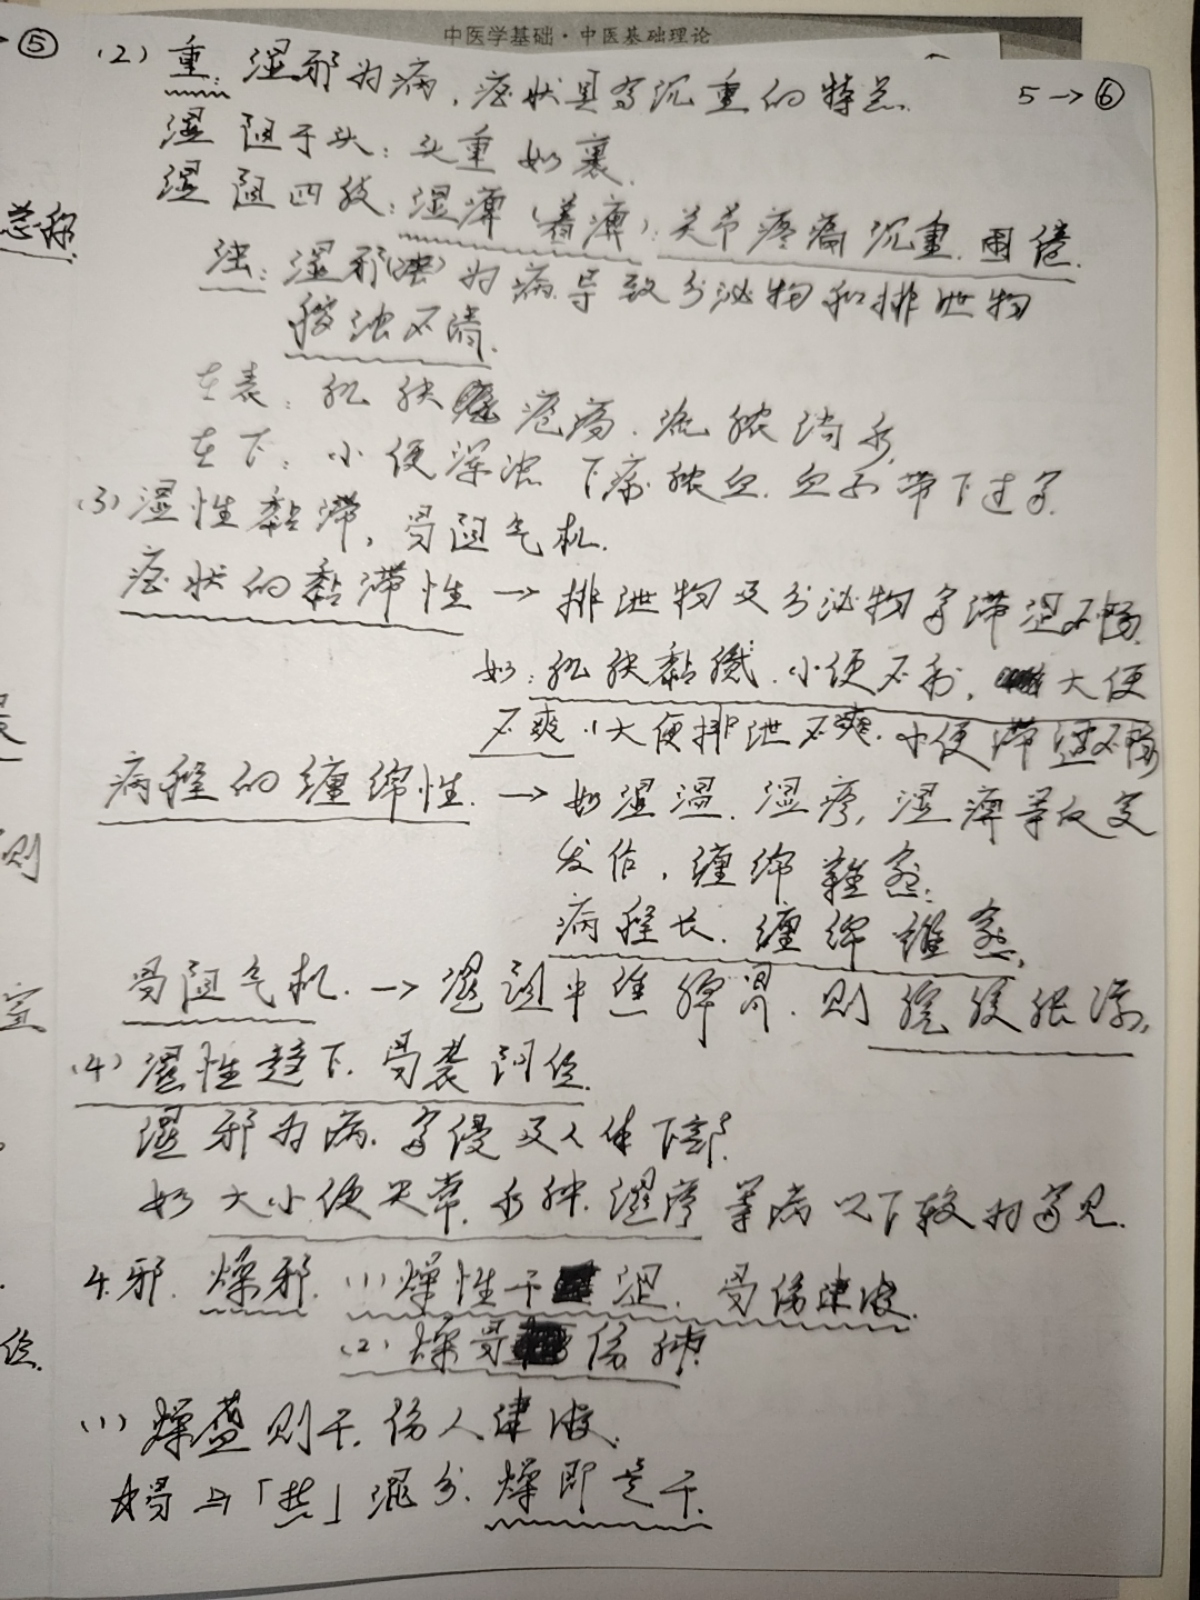 中医学基础·中医基础理论
⑤
5→⑥
(2) 重：湿邪为病，症状具有沉重的特点.
湿阻于头：头重如裹.
湿阻四肢：湿痹（着痹）：关节疼痛沉重.困倦.
总称
浊：湿邪(浊)为病.导致分泌物和排泄物
秽浊不清.
在表：肌肤 疮疡.流脓淌水,
在下：小便浑浊 下痢脓血. 带下过多.
(3) 湿性黏滞，易阻气机.
症状的黏滞性 → 排泄物及分泌物多滞涩不畅.
如：肌肤黏腻.小便不利， 大便
不爽.(大便排泄不爽.小便滞涩不畅
病程的缠绵性. → 如湿温.湿疹，湿痹等反复
发作，缠绵难愈.
则
病程长.缠绵难愈.
易阻气机. → 湿阻中焦脾胃.则脘腹胀满.
(4) 湿性趋下.易袭阴位.
湿邪为病.多侵及人体下部.
如大小便失常.水肿.湿疹等病以下较为多见.
4.邪.燥邪.(1)燥性干 涩.易伤津液.
(2)燥易 伤肺.
位.
(1) 燥盛则干.伤人津液.
易与「热」混分.燥即是干.